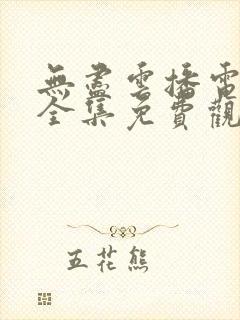 無盡雲播電
全集免費觀
五花熊